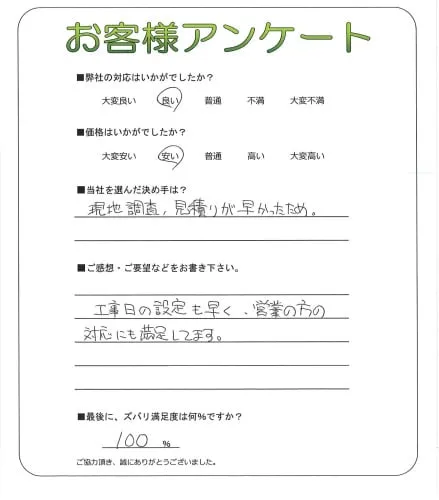 お客様アンケート
■弊社の対応はいかがでしたか？
大変良い 良い 普通 不満 大変不満
■価格はいかがでしたか？
大変安い 安い 普通 高い 大変高い
■当社を選んだ決め手は？
現地調査，見積りが早かったため。
■ご感想・ご要望などをお書き下さい。
工事日の設定も早く、営業の方の
対応にも満足してます。
■最後に、ズバリ満足度は何％ですか？
100 ％
ご協力頂き、誠にありがとうございました。